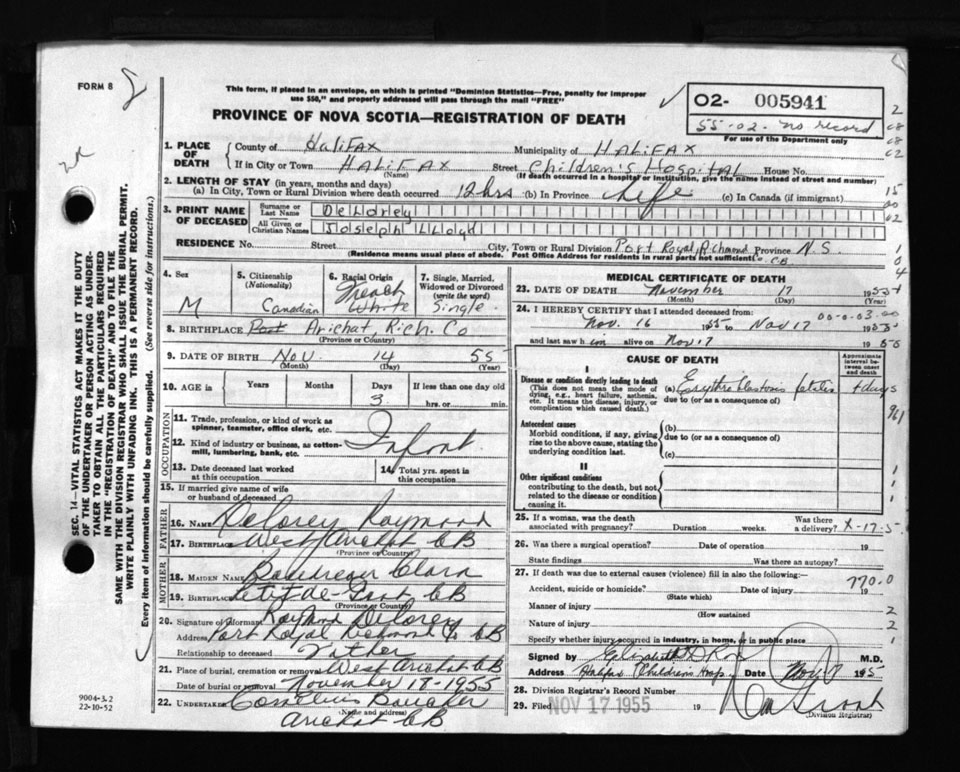 FORM 8
This form, if placed in an envelope, on which is printed "Dominion Statistics—Free, penalty for improper
use $50," and properly addressed will pass through the mail "FREE"
PROVINCE OF NOVA SCOTIA—REGISTRATION OF DEATH
02- 005941
55-02- no record
For use of the Department only
SEC. 14—VITAL STATISTICS ACT MAKES IT THE DUTY
OF THE UNDERTAKER OR PERSON ACTING AS UNDER-
TAKER TO OBTAIN ALL THE PARTICULARS REQUIRED
IN THE "REGISTRATION OF DEATH" AND TO FILE THE
SAME WITH THE DIVISION REGISTRAR WHO SHALL ISSUE THE BURIAL PERMIT.
WRITE PLAINLY WITH UNFADING INK. THIS IS A PERMANENT RECORD.
Every item of information should be carefully supplied. (See reverse side for instructions.)
1. PLACE OF DEATH
County of Halifax Municipality of HALIFAX
If in City or Town HALIFAX Street Children's Hospital House No.
(Name) (If death occurred in a hospital or institution, give the name instead of street and number)
2. LENGTH OF STAY (in years, months and days)
(a) In City, Town or Rural Division where death occurred 12 hrs (b) In Province Life (c) In Canada (if immigrant)
3. PRINT NAME OF DECEASED
Surname or Last Name DeLorey
All Given or Christian Names Joseph Lloyd
RESIDENCE No. Street City, Town or Rural Division Port Royal, Richmond Province N.S.
(Residence means usual place of abode. Post Office Address for residents in rural parts not sufficient) C.B
4. Sex M
5. Citizenship (Nationality) Canadian
6. Racial Origin French White
7. Single, Married, Widowed or Divorced (write the word) Single
8. BIRTHPLACE Post Arichat, Rich. Co
(Province or Country)
9. DATE OF BIRTH Nov. 14 55
(Month) (Day) (Year)
10. AGE in Years Months Days 3 If less than one day old hrs. or min.
OCCUPATION
11. Trade, profession, or kind of work as spinner, teamster, office clerk, etc.
12. Kind of industry or business, as cotton-mill, lumbering, bank, etc. Infant
13. Date deceased last worked at this occupation
14. Total yrs. spent in this occupation
15. If married give name of wife or husband of deceased
FATHER
16. NAME Delorey Raymond
17. Birthplace West Arichat CB
(Province or Country)
MOTHER
18. MAIDEN NAME Boudreau Clara
19. BIRTHPLACE Petit de Grat CB
(Province or Country)
20. Signature of informant Raymond Delorey
Address Port Royal Richmond Co CB
Relationship to deceased Father
21. Place of burial, cremation or removal West Arichat CB
Date of burial or removal November 18-1955
22. UNDERTAKER Cornelius Boucher
(Name and address)
Arichat CB
9004-3.2
22-10-52
MEDICAL CERTIFICATE OF DEATH
23. DATE OF DEATH November 17 1955
(Month) (Day) (Year)
24. I HEREBY CERTIFY that I attended deceased from:
Nov. 16 1955 to Nov 17 1955
and last saw him alive on Nov 17 1955
CAUSE OF DEATH
Approximate interval between onset and death
I
Disease or condition directly leading to death
(This does not mean the mode of dying, e.g., heart failure, asthenia, etc. It means the disease, injury, or complication which caused death.)
(a) Erythroblastosis fetalis days
due to (or as a consequence of)
Antecedent causes
Morbid conditions, if any, giving rise to the above cause, stating the underlying condition last.
(b)
due to (or as a consequence of)
(c)
II
Other significant conditions
contributing to the death, but not related to the disease or condition causing it.
25. If a woman, was the death associated with pregnancy? Duration weeks. Was there a delivery? X-17-5
26. Was there a surgical operation? Date of operation 19
State findings Was there an autopsy?
27. If death was due to external causes (violence) fill in also the following:—
770.0
Accident, suicide or homicide? Date of injury 19
(State which)
Manner of injury
(How sustained
Nature of injury
Specify whether injury occurred in industry, in home, or in public place
Signed by Elizabeth M.D.
Address Halifax Childrens Hosp. Date Nov 195
28. Division Registrar's Record Number
29. Filed NOV 17 1955 19
(Division Registrar)